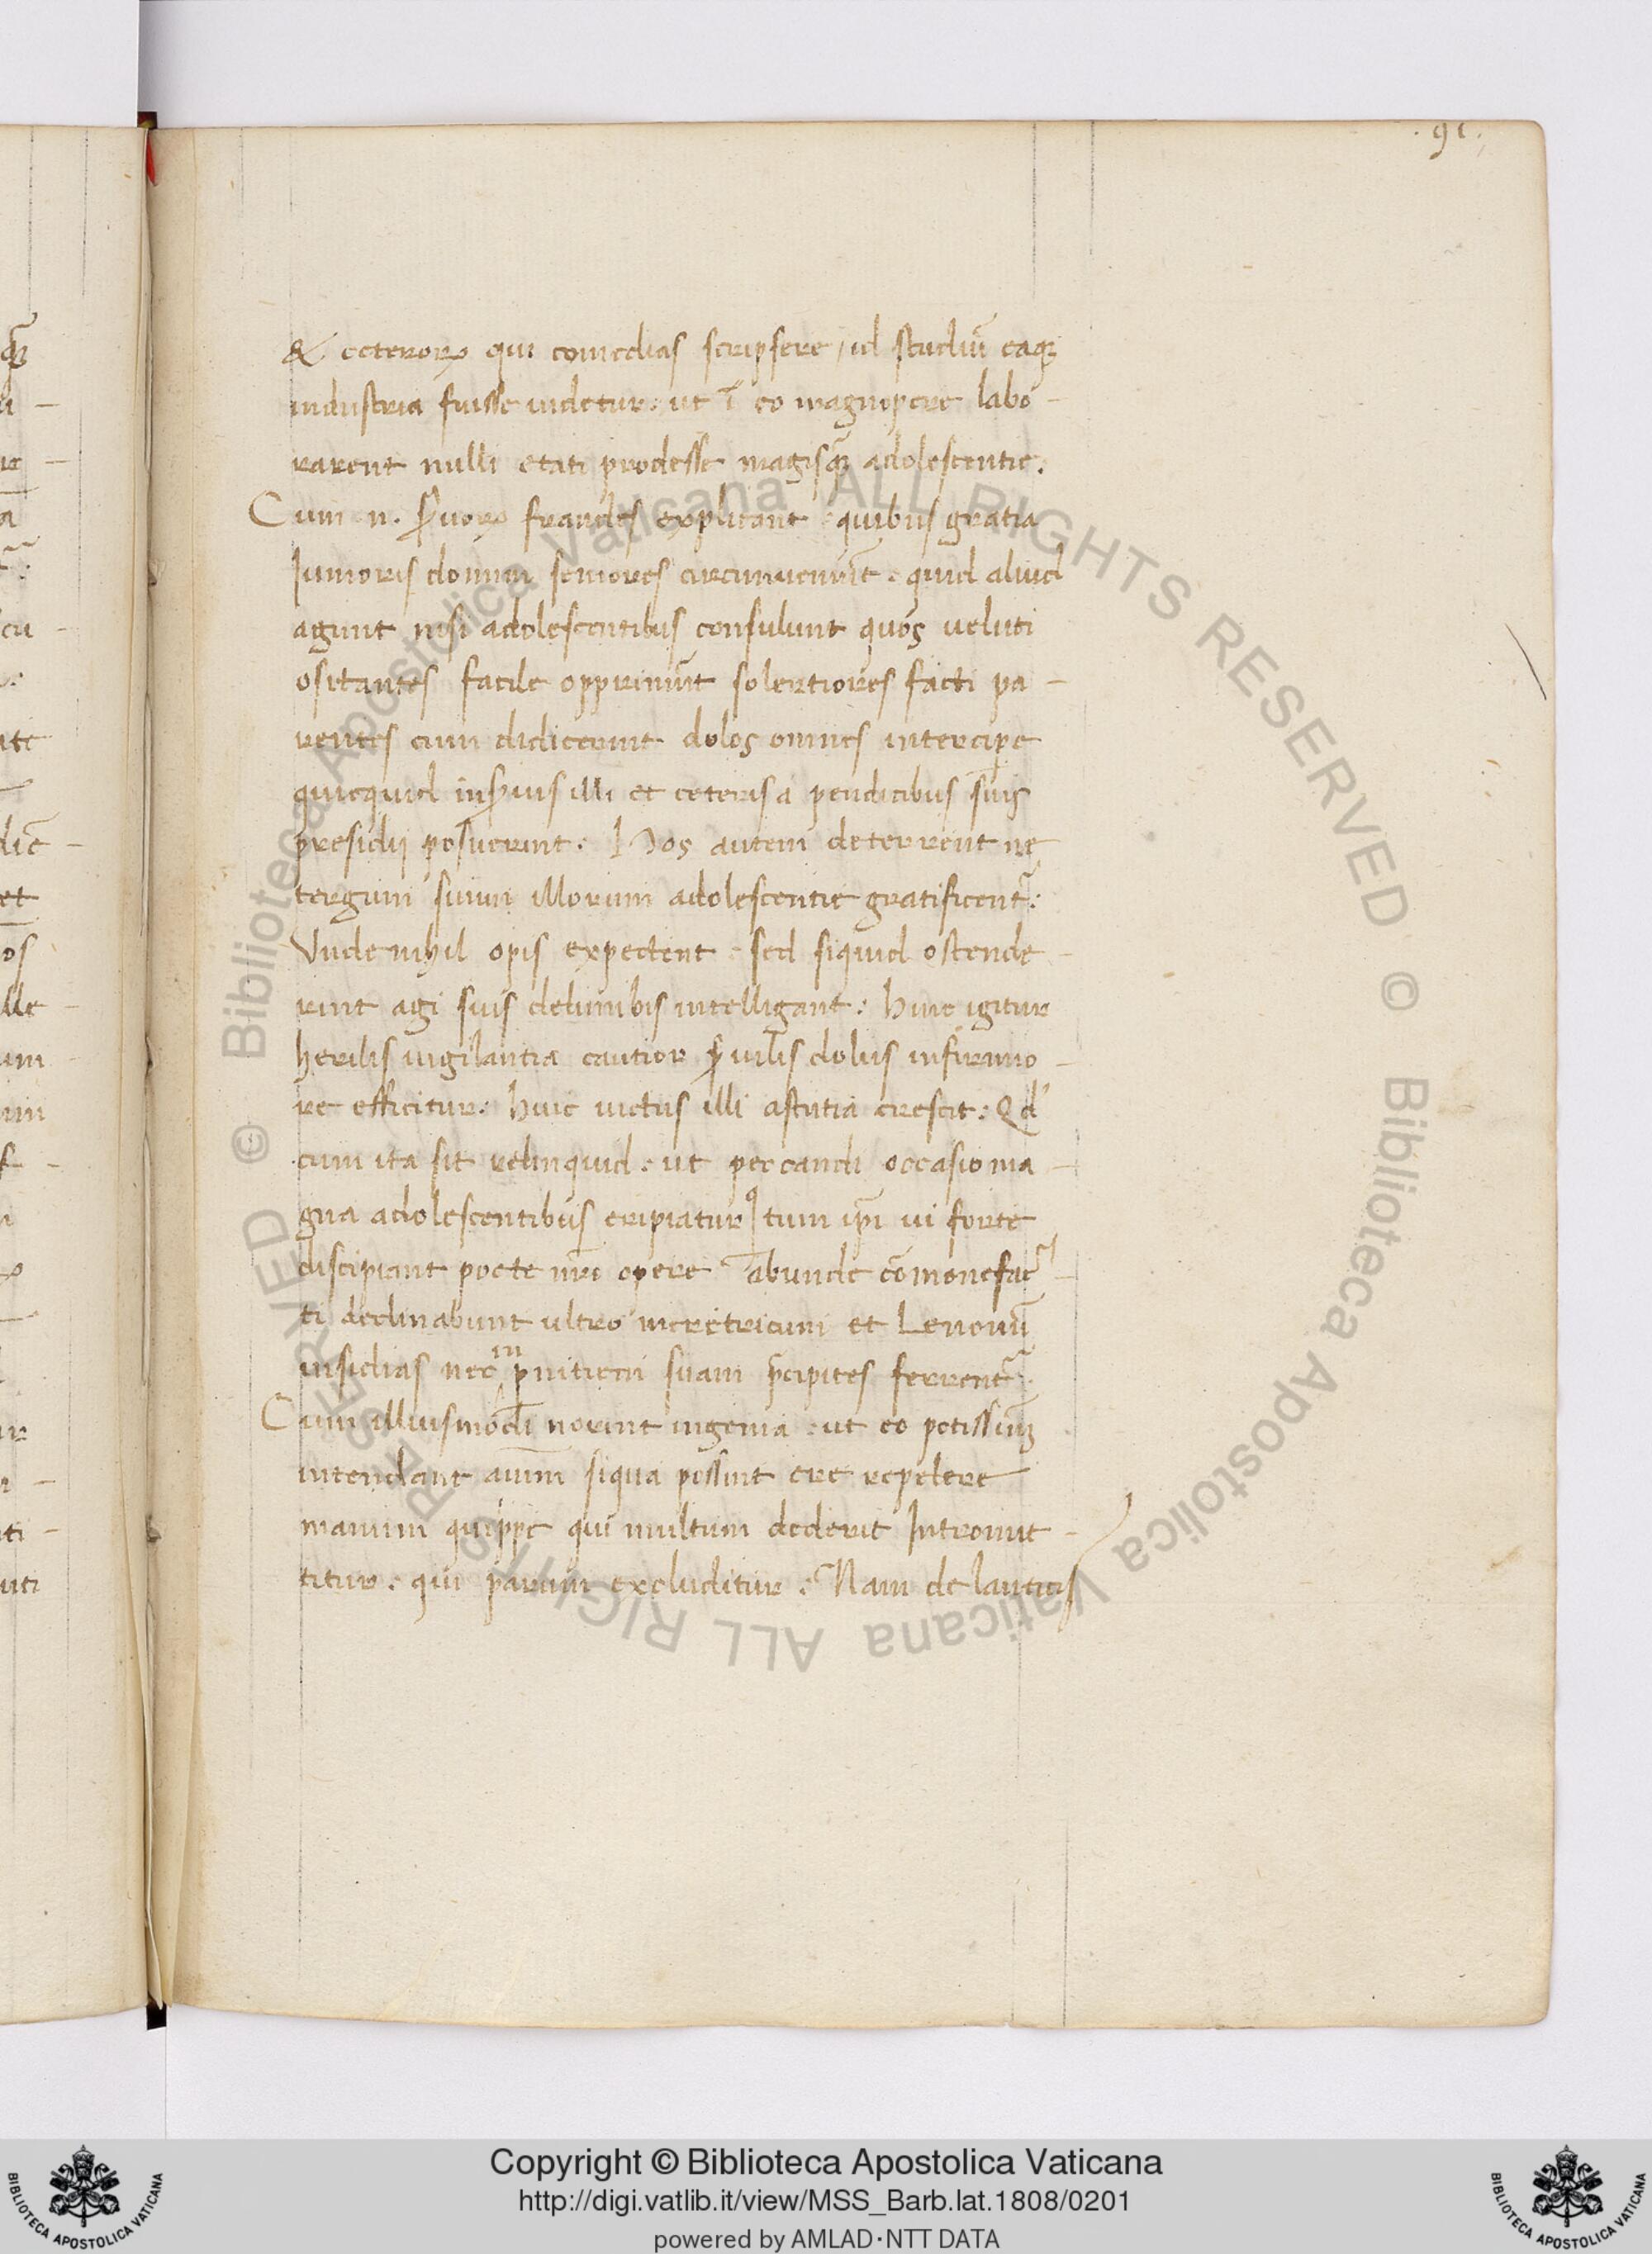 .91.
& ceterorꝝ qui comedias scripsere, id studiū eaqꝫ
industria fuisse uidetur. ut ī eo magnopere labo-
rarent nulli etati prodesse magisqꝫ adolescentie.
Cum .n. ẜuorꝝ fraudes explicant quibus gratia
Iunioris domini seniores circumueniūt. quid aliud
agunt nisi adolescentibus consulunt quos ueluti
ositantes facile opprimūt solertiores facti pa-
rentes cum didicerint dolos omnes intercipe
quicquid inẜuius illi et ceteris a pendicibus suis
presidij posuerint. Hos autem deterrent ne
tergum suum illorum adolescentie gratificent̄.
Vnde nihil opis expectent. sed siquid ostende-
rint agi suis delinibis intelligant. hinc igitur
herilis uigilantia cautior ẜuilis dolus infirmio-
re efficitur. hinc uictus illi astutia crescit. Qd
cum ita sit relinquid. ut peccandi occasio ma-
gna adolescentibus eripiatur tum ip̄i ui forte
discipiant poete nr̄i opere abunde cōmonefac-
ti declinabunt ultro meretricum et Lenonū
insidias nec in pnitiem suam p̄cipites ferrent̄.
Cum illiusmodi norint ingenia. ut eo potissimꝫ
intendant aium̄ siqua possint ere repelere
manum quippe qui multum dederit Intromit-
titur. qui parum excluditur. Nam de lauticijs
Copyright © Biblioteca Apostolica Vaticana
http://digi.vatlib.it/view/MSS_Barb.lat.1808/0201
powered by AMLAD·NTT DATA